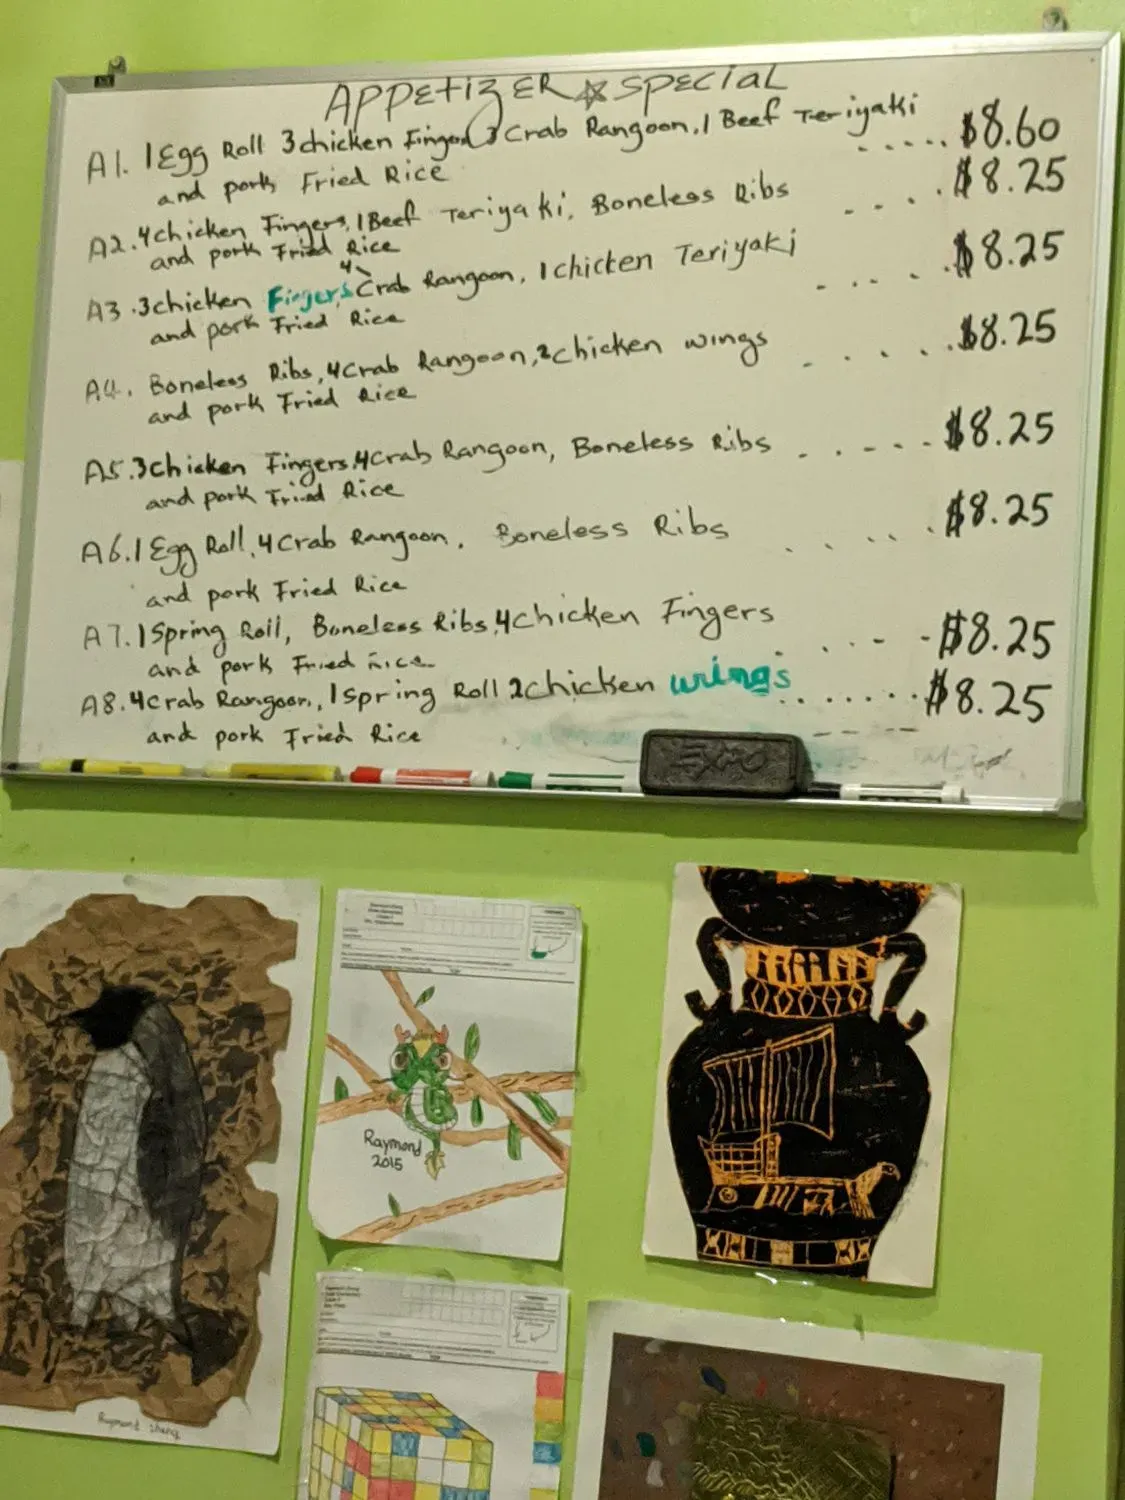 APPEtizER ☆ SPECiaL
A1. 1 Egg Roll 3 chicken Finger, 3 Crab Rangoon, 1 Beef Teriyaki ..... $8.60
and pork Fried Rice
A2. 4 chicken Fingers, 1 Beef Teriyaki, Boneless Ribs .... $8.25
and pork Fried Rice
A3. 3 chicken Fingers, 4 Crab Rangoon, 1 chicken Teriyaki ..... $8.25
and pork Fried Rice
A4. Boneless Ribs, 4 Crab Rangoon, 2 chicken wings ..... $8.25
and pork Fried Rice
A5. 3 chicken Fingers, 4 Crab Rangoon, Boneless Ribs ..... $8.25
and pork Fried Rice
A6. 1 Egg Roll, 4 Crab Rangoon, Boneless Ribs ..... $8.25
and pork Fried Rice
A7. 1 Spring Roll, Boneless Ribs, 4 chicken Fingers ..... $8.25
and pork Fried Rice
A8. 4 Crab Rangoon, 1 Spring Roll 2 chicken wings ...... $8.25
and pork Fried Rice
EXPO
Raymond
2015
Raymond